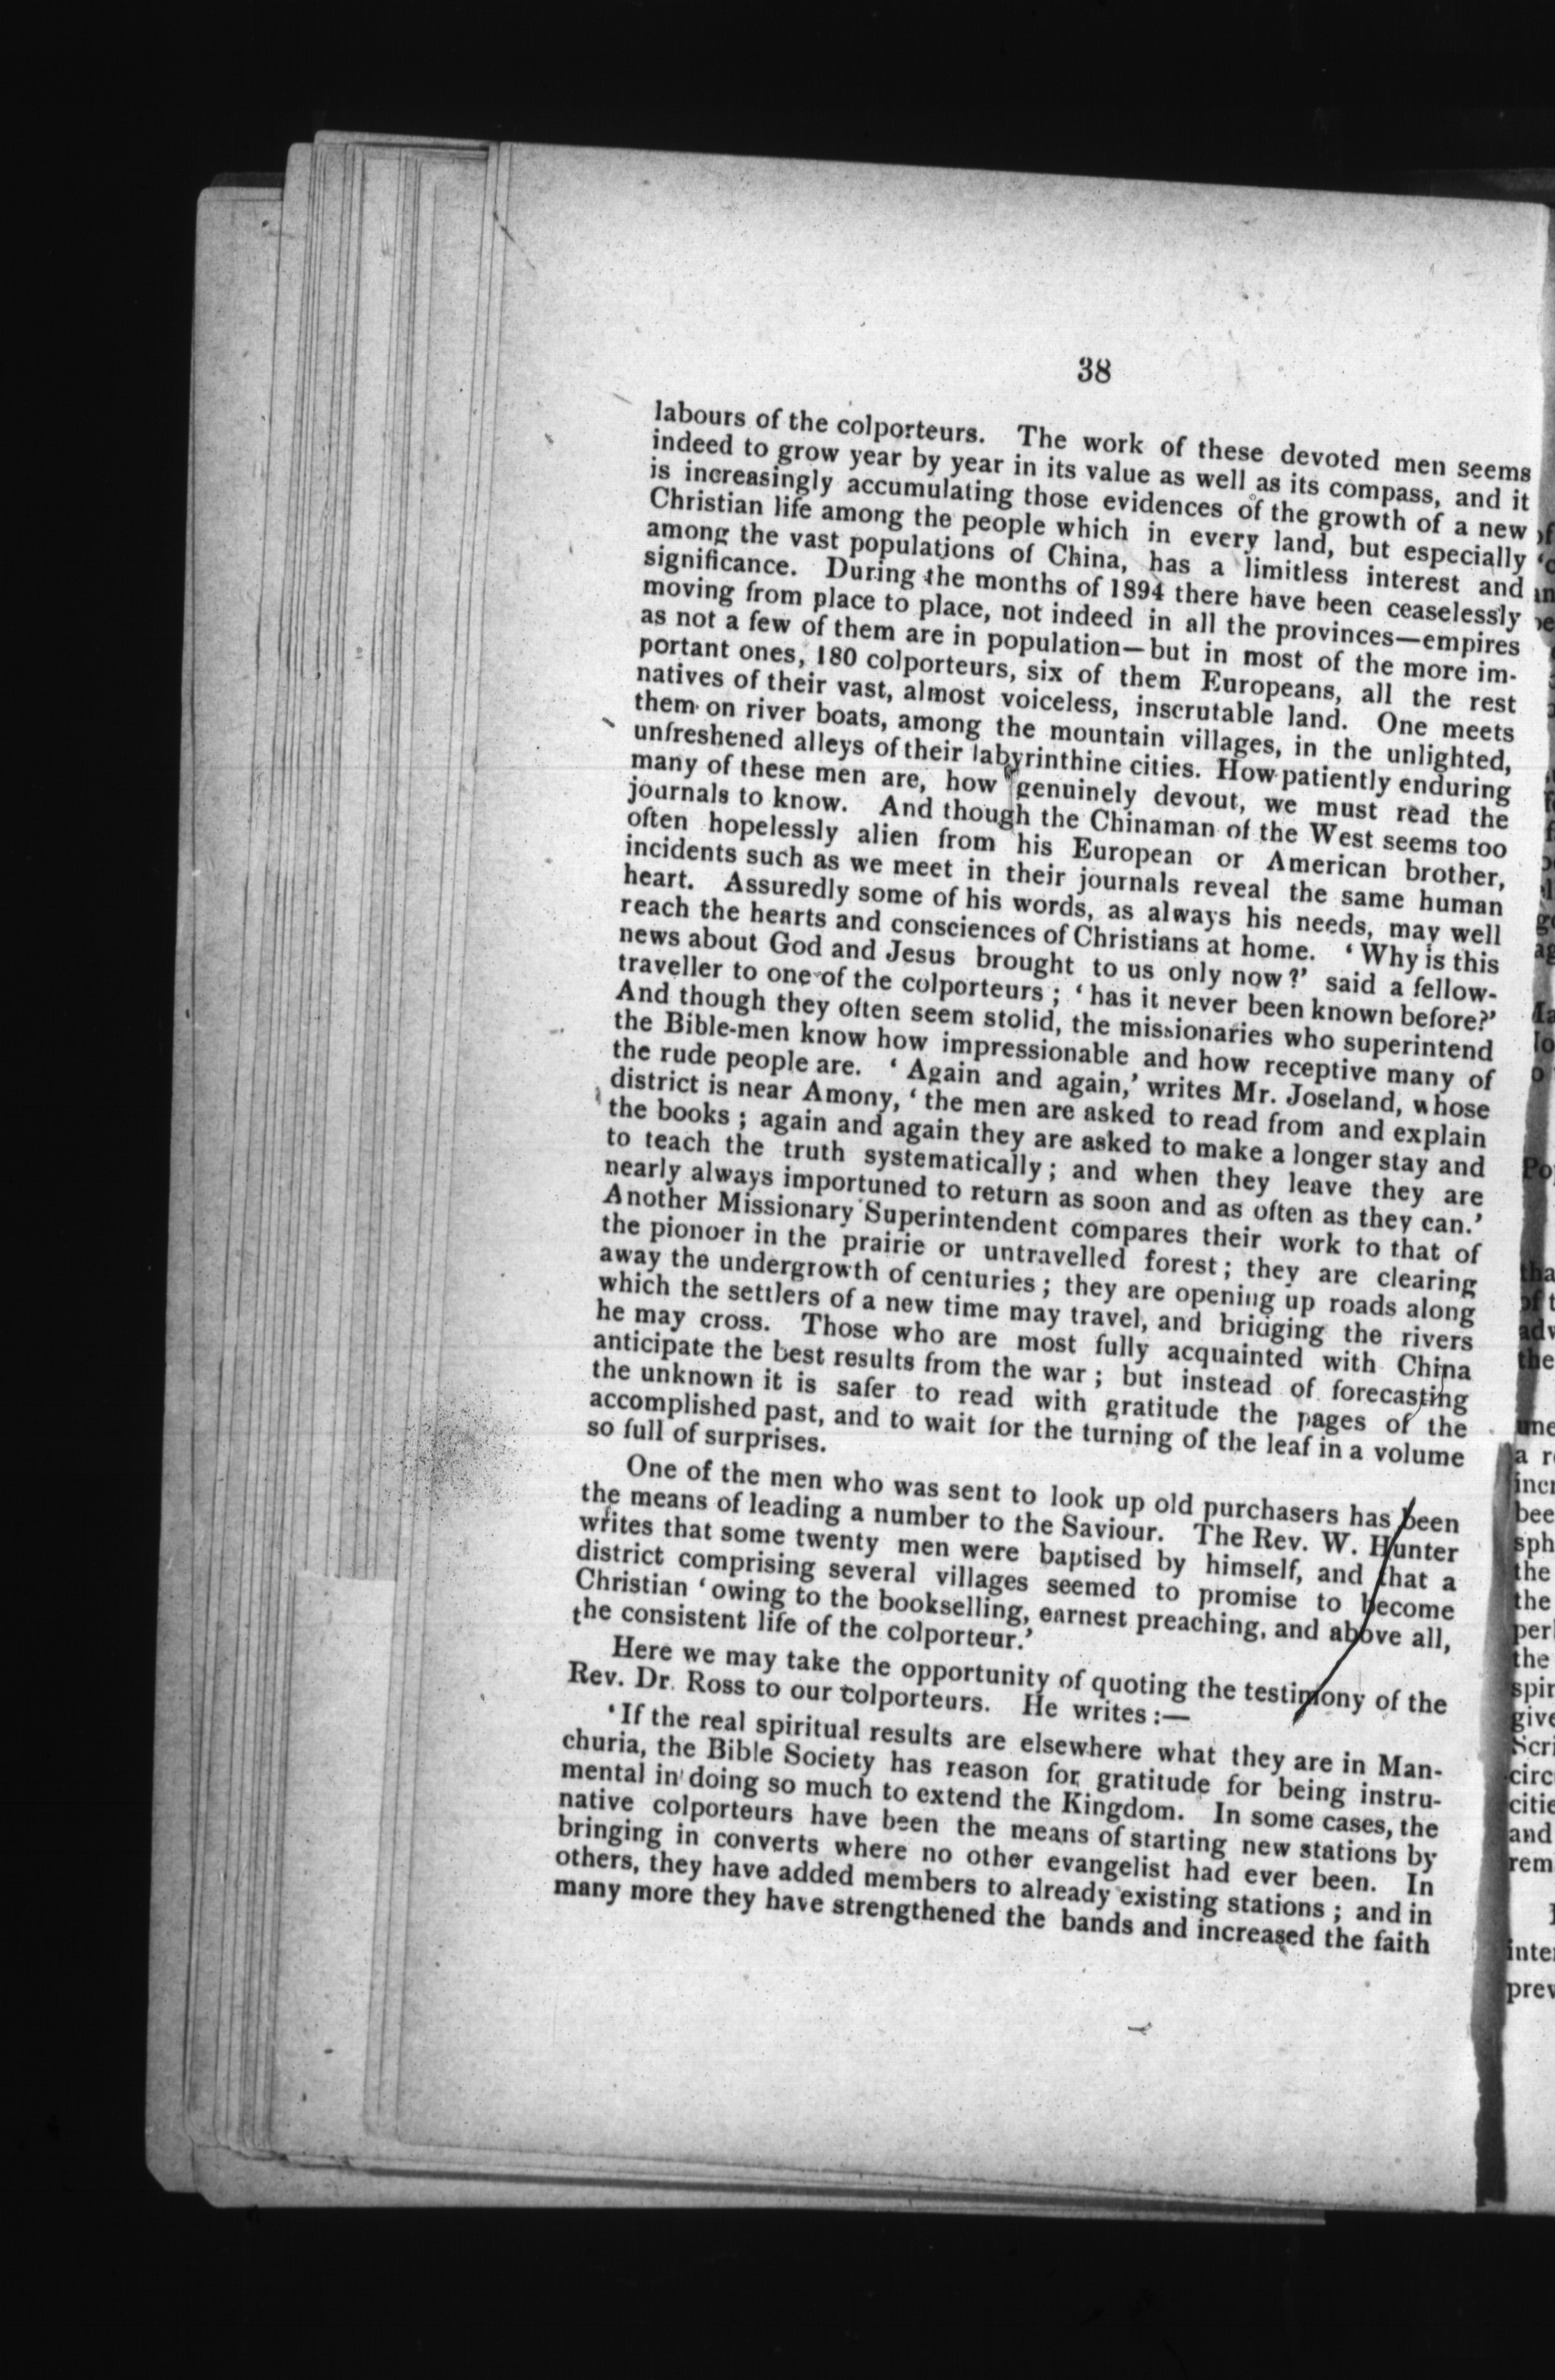 38
labours of the colporteurs. The work of these devoted men seems
indeed to grow year by year in its value as well as its compass, and it
is increasingly accumulating those evidences of the growth of a new
Christian life among the people which in every land, but especially
among the vast populations of China, has a limitless interest and
significance. During the months of 1894 there have been ceaselessly
moving from place to place, not indeed in all the provinces—empires
as not a few of them are in population—but in most of the more im-
portant ones, 180 colporteurs, six of them Europeans, all the rest
natives of their vast, almost voiceless, inscrutable land. One meets
them on river boats, among the mountain villages, in the unlighted,
unfreshened alleys of their labyrinthine cities. How patiently enduring
many of these men are, how genuinely devout, we must read the
journals to know. And though the Chinaman of the West seems too
often hopelessly alien from his European or American brother,
incidents such as we meet in their journals reveal the same human
heart. Assuredly some of his words, as always his needs, may well
reach the hearts and consciences of Christians at home. ‘Why is this
news about God and Jesus brought to us only now?’ said a fellow-
traveller to one of the colporteurs; ‘has it never been known before?’
And though they often seem stolid, the missionaries who superintend
the Bible-men know how impressionable and how receptive many of
the rude people are. ‘Again and again,’ writes Mr. Joseland, whose
district is near Amony, ‘the men are asked to read from and explain
the books; again and again they are asked to make a longer stay and
to teach the truth systematically; and when they leave they are
nearly always importuned to return as soon and as often as they can.’
Another Missionary Superintendent compares their work to that of
the pionoer in the prairie or untravelled forest; they are clearing
away the undergrowth of centuries; they are opening up roads along
which the settlers of a new time may travel, and bridging the rivers
he may cross. Those who are most fully acquainted with China
anticipate the best results from the war; but instead of forecasting
the unknown it is safer to read with gratitude the pages of the
accomplished past, and to wait for the turning of the leaf in a volume
so full of surprises.
One of the men who was sent to look up old purchasers has been
the means of leading a number to the Saviour. The Rev. W. Hunter
writes that some twenty men were baptised by himself, and that a
district comprising several villages seemed to promise to become
Christian ‘owing to the bookselling, earnest preaching, and above all,
the consistent life of the colporteur.’
Here we may take the opportunity of quoting the testimony of the
Rev. Dr. Ross to our colporteurs. He writes:—
‘If the real spiritual results are elsewhere what they are in Man-
churia, the Bible Society has reason for gratitude for being instru-
mental in doing so much to extend the Kingdom. In some cases, the
native colporteurs have been the means of starting new stations by
bringing in converts where no other evangelist had ever been. In
others, they have added members to already existing stations; and in
many more they have strengthened the bands and increased the faith